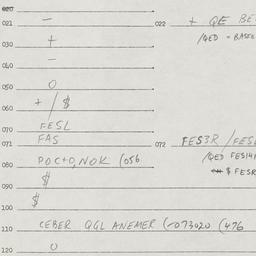 020
021 —
022 + QE BE
/QED = BASE
030 +
040 —
050 O
060 + / $
070 FESL
071 FAS
072 FES3R / FES
/QED FES14
080 POC+O, NOK (056
$ FESR
090 $
100 $
110 CEBER QGL ANEMER (-073020 (476
120 O